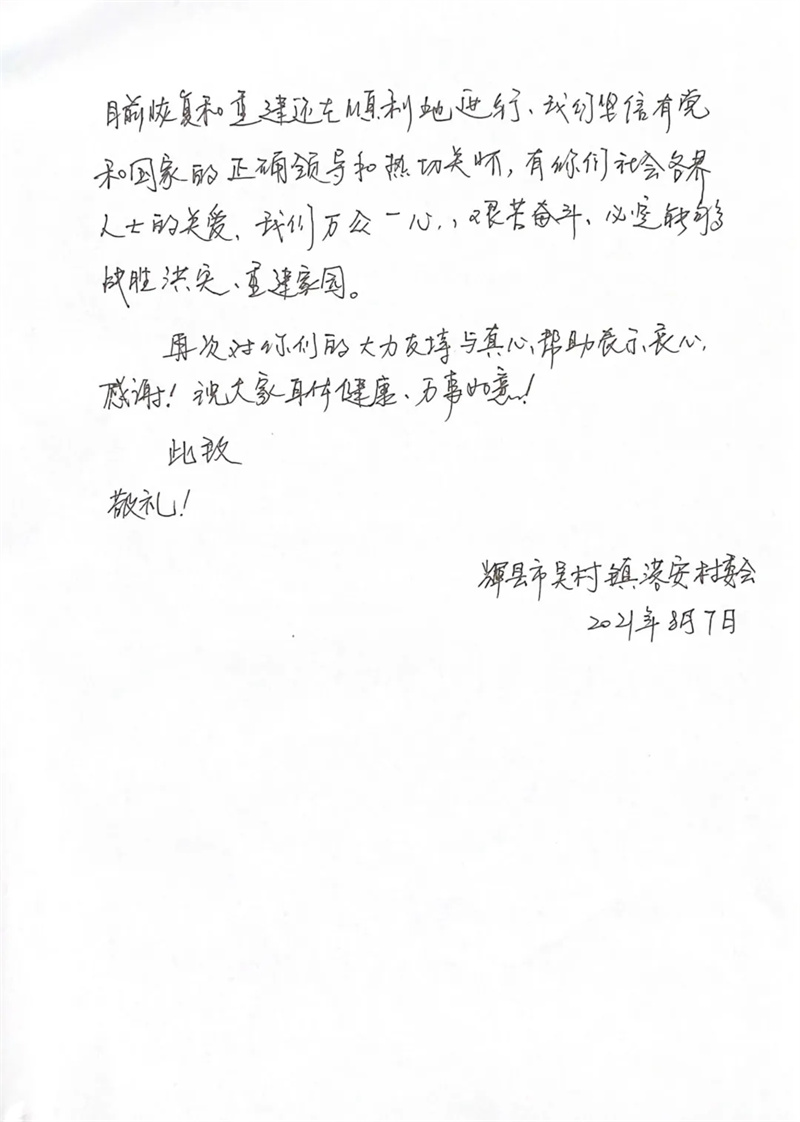 目前恢复和重建还在顺利地进行、我们坚信有党
和国家的正确领导和热切关怀，有你们社会各界
人士的关爱、我们万众一心，艰苦奋斗、必定能够
战胜洪灾、重建家园。
再次对你们的大力支持与真心帮助表示衷心
感谢！祝大家身体健康、万事如意！
此致
敬礼！
辉县市吴村镇 安村委会
2021年8月7日